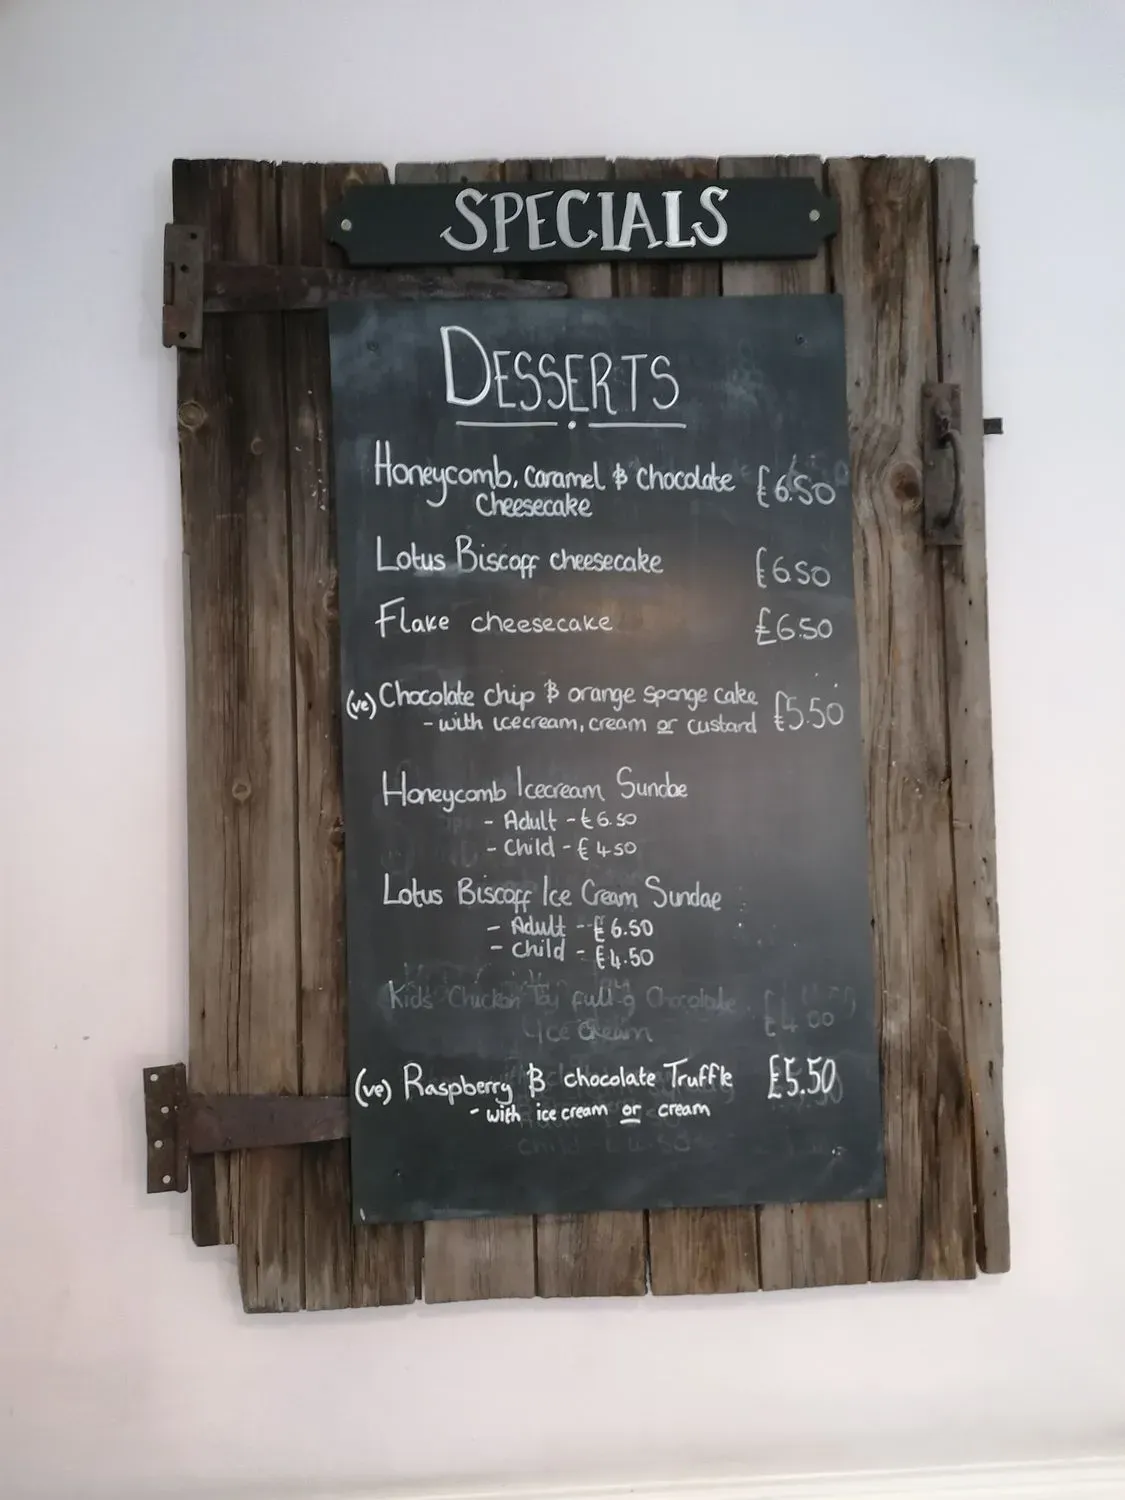 SPECIALS
DESSERTS
Honeycomb, Caramel & Chocolate £6.50
Cheesecake
Lotus Biscoff cheesecake £6.50
Flake cheesecake £6.50
(ve) Chocolate chip & orange sponge cake £5.50
- with icecream, cream or custard
Honeycomb Icecream Sundae
- Adult - £6.50
- Child - £4.50
Lotus Biscoff Ice Cream Sundae
- Adult - £6.50
- Child - £4.50
Kids' Chicken Toy full of Chocolate £4.00
Ice Cream
(ve) Raspberry & chocolate Truffle £5.50
- with ice cream or cream